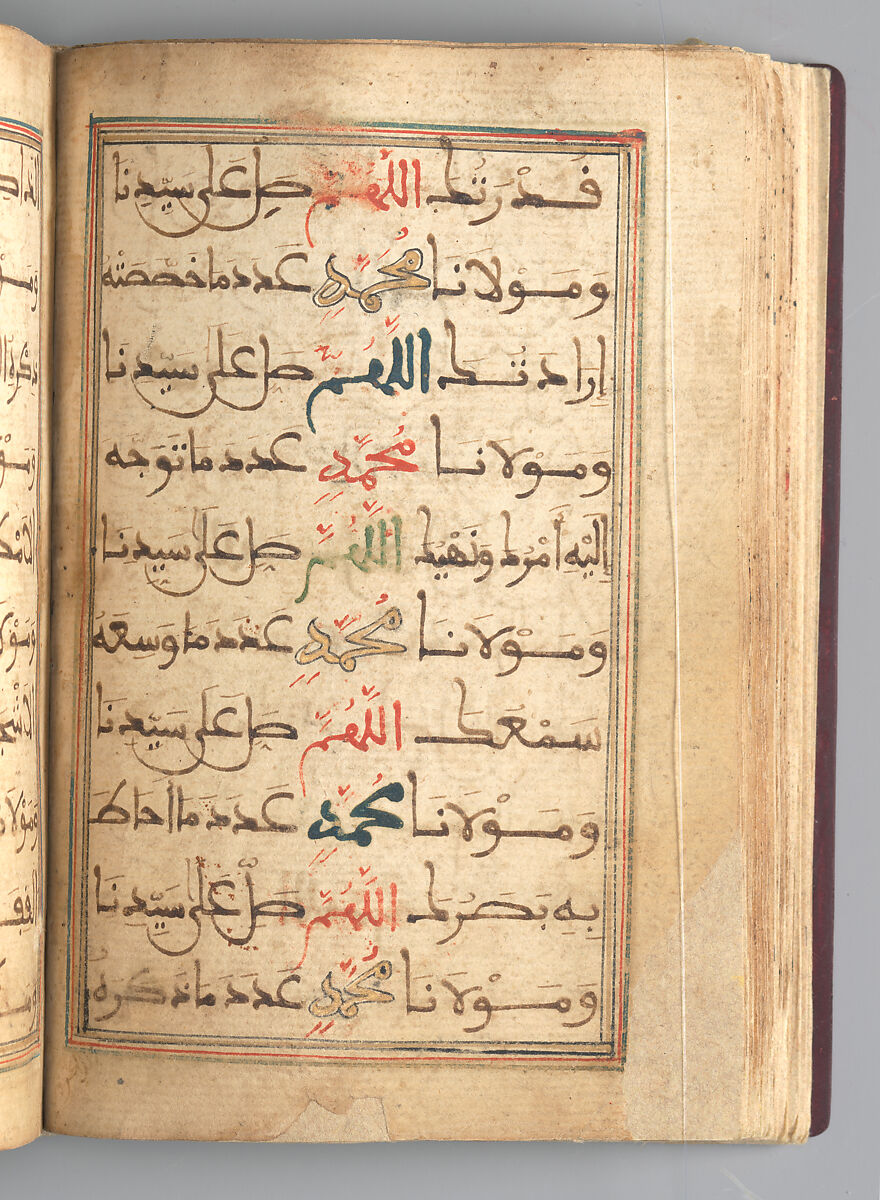 قُدْرَتُكَ اللَّهُمَّ صَلِّ عَلَى سَيِّدِنَا
وَمَوْلَانَا مُحَمَّدٍ عَدَدَ مَا خَصَّصَتْهُ
إِرَادَتُكَ اللَّهُمَّ صَلِّ عَلَى سَيِّدِنَا
وَمَوْلَانَا مُحَمَّدٍ عَدَدَ مَا تَوَجَّهَ
إِلَيْهِ أَمْرُكَ وَنَهْيُكَ اللَّهُمَّ صَلِّ عَلَى سَيِّدِنَا
وَمَوْلَانَا مُحَمَّدٍ عَدَدَ مَا وَسِعَهُ
سَمْعُكَ اللَّهُمَّ صَلِّ عَلَى سَيِّدِنَا
وَمَوْلَانَا مُحَمَّدٍ عَدَدَ مَا أَحَاطَ
بِهِ بَصَرُكَ اللَّهُمَّ صَلِّ عَلَى سَيِّدِنَا
وَمَوْلَانَا مُحَمَّدٍ عَدَدَ مَا ذَكَرَهُ